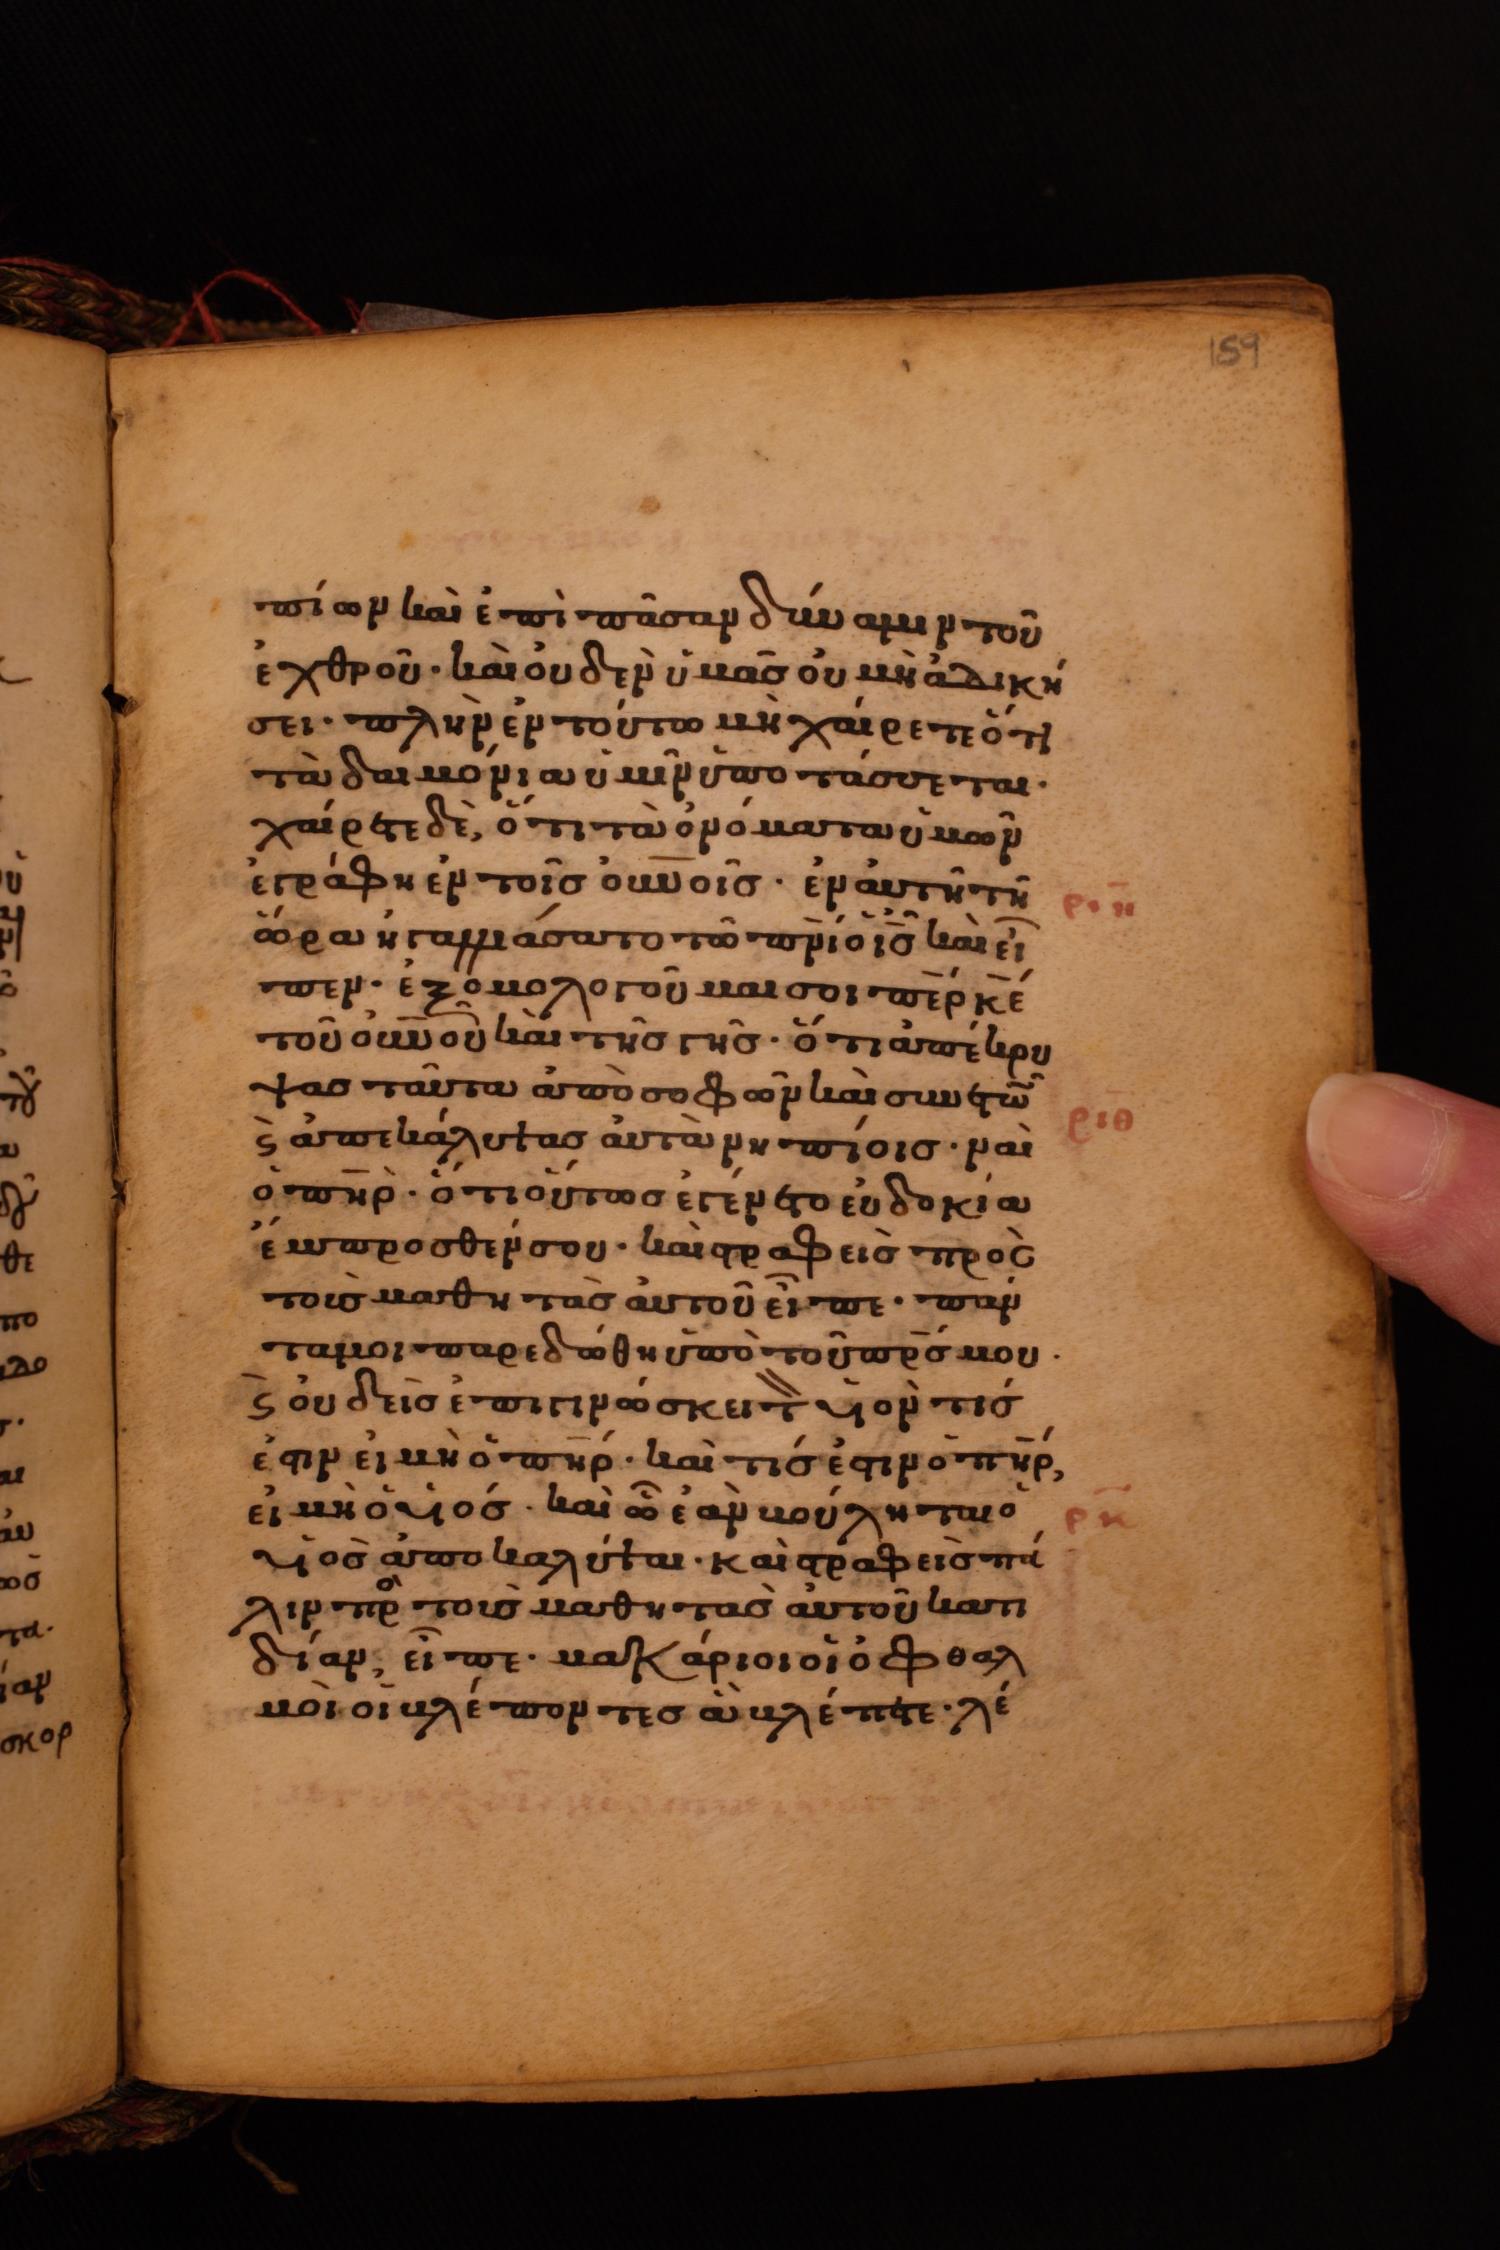 159
πίων καὶ ἐπὶ πᾶσαν δύναμιν τοῦ
ἐχθροῦ· καὶ οὐδὲν ὑμᾶς οὐ μὴ ἀδική
σει· πλὴν ἐν τούτω μὴ χαίρετε ὅτι
τὰ δαιμόνια ὑμῖν ὑποτάσσεται·
χαίρετε δὲ, ὅτι τὰ ὀνόματα ὑμῶν
ἐγράφη ἐν τοῖς οὐνοῖς· ἐν αὐτῆ τῆ
ρ̅ι̅η̅
ὥρα ἠγαλλιάσατο τῶ π̅ν̅ι ὁ ι̅ς̅ καὶ εἶ
πεν· ἐξομολογοῦμαι σοι π̅ε̅ρ κ̅ε̅
τοῦ οὐνοῦ καὶ τῆς γῆς· ὅτι ἀπέκρυ
ψας ταῦτα ἀπὸ σοφῶν καὶ συνετῶ̅
ρ̅ι̅θ̅
ϛ̀ ἀπεκάλυψας αὐτὰ νηπίοις· ναὶ
ὁ π̅η̅ρ· ὅτι οὕτως ἐγένετο εὐδοκία
ἔμπροσθέν σου· καὶ στραφεὶς πρὸς
τοὺς μαθητὰς αὐτοῦ εἶπε· πάν
τα μοι παρεδώθη ὑπὸ τοῦ π̅ρ̅ς μου·
ϛ̀ οὐδεὶς ἐπιγινώσκει τ̀ υἱὸν τίς
ἐστιν εἰ μὴ ὁ π̅η̅ρ· καὶ τίς ἐστιν ὁ π̅η̅ρ,
εἰ μὴ ὁ υἱός· καὶ ὧ ἐὰν βούληται ὁ
ρ̅κ̅
υἱὸς ἀποκαλύψαι· καὶ στραφεὶς πά
λιν πρὸ τοὺς μαθητὰς αὐτοῦ κατι
δίαν, εἶπε· μακάριοι οἱ ὀφθαλ
μοὶ οἱ βλέποντες ἃ βλέπετε· λέ